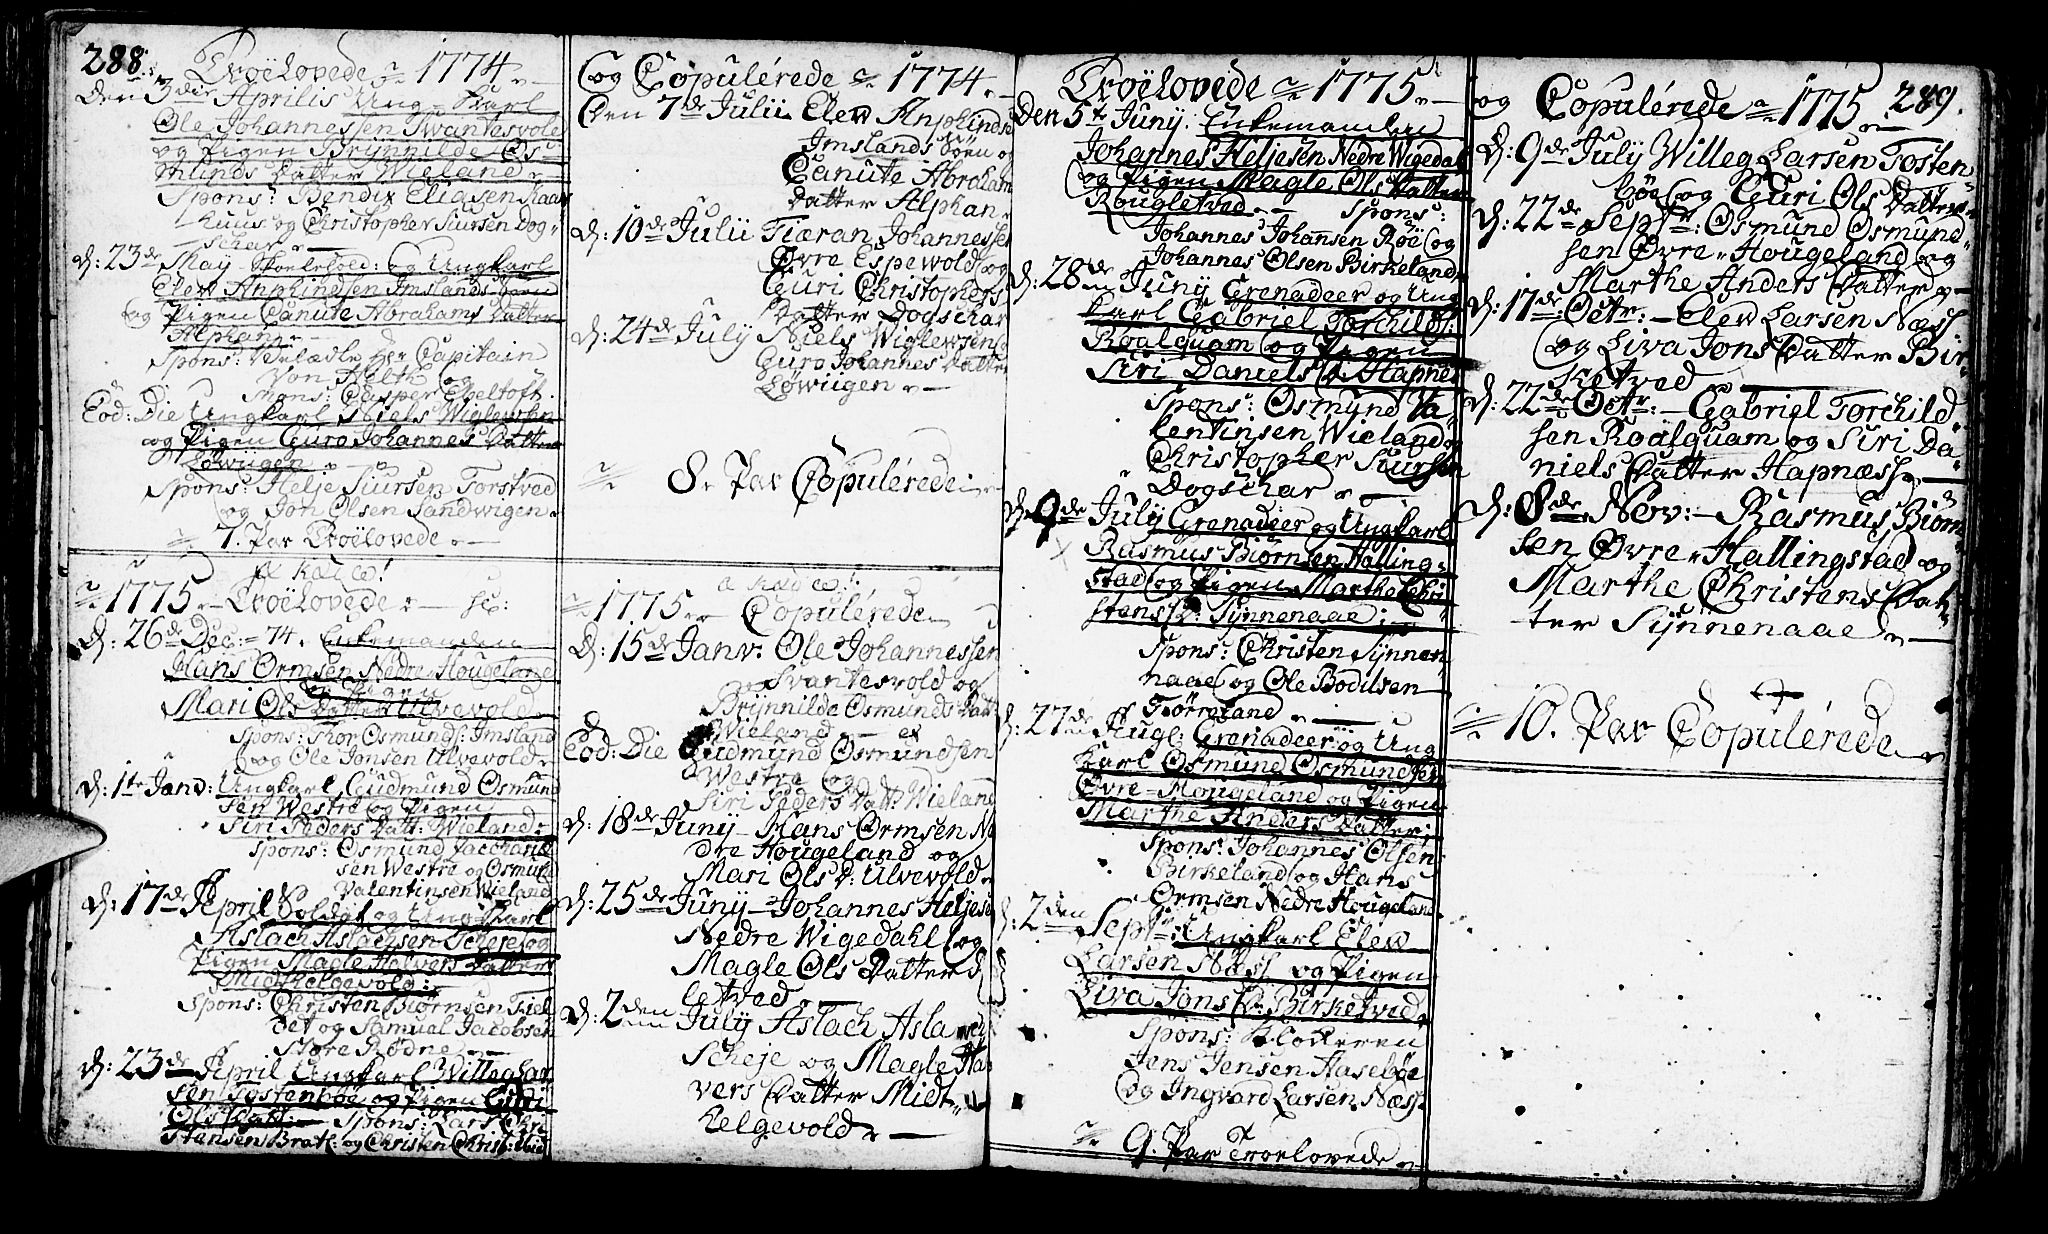 288.
Troëlovede 1774
Den 3die Aprilis Ung-Karl
Ole Johannessen Swantesvole
og Pigen Brynnilde Os-
munds Datter Wieland
Spons: Bendix Eliasen Raar
huus og Christopher Siursen Dog-
schar
D: 23de May og Ungkarl
Elew Anphindsen Imslands Søen
og Pigen Canute Abrahams Datter
Alphan
Spons: Velædle Her Capitain
Von Helth og
Mons: Casper Ebeltoft.
Eod: Die Ungkarl Niels Wiglewsen
og Pigen Guro Johannes Datter
Løwiigen
Spons: Helje Siursen Torstved
og Jon Olsen Sandwigen.
7. Par Troëlovede
1775 Troëlovede
D: 26de Dec: 74. Enkemanden
Hans Ormsen Nedre Hougeland
og Pigen
Mari Ols Datter Ulvevold
Spons: Thor Osmunds: Imsland
og Ole Jonsen Ulvevold
D: 1te Janv: Ungkarl Gudmund Osmund
sen Westre og Pigen
Siri Peders Datt: Wieland
Spons: Osmund Zacharias
sen Westre og Osmund
Valentinsen Wieland
D: 17de April Soldat og Ung-Karl
Aslach Aslachsen Scheje og
Pigen Magle Halvers Datter
Midthelgevold
Spons: Christen Biørnsen Tiel
det og Samual Jacobsen
Støre Rødne
D: 23de April Ungkarl Willeg Lar
sen Tostenbøe og Pigen Guri
Ols Datt: Spons: Lars Chri
stensen Brat: og Christen Christ:
og Copulérede 1774
Den 7de Julii Elew Anphinds
Imslands Søen og
Canute Abraham
Datter Alphan
D: 10de Julii Tiæran Johannessen
Øvre Espewold og
Guri Christophers
Datter Dogschar
D: 24de July Niels Wiglewsen
Guro Johannes Datter
Løwiigen
8. Par Copulérede
1775 Copulérede
D: 15de Janv. Ole Johannessen
Svantesvold og
Brynnilde Osmunds Datt:
Wieland
Eod: Die Gudmund Osmundsen
Westre og
Siri Peders Datt: Wieland
D: 18de Juny Hans Ormsen Ne
dre Hougeland og
Mari Ols D: Ulvevold
D: 25de Juny Johannes Heljese
Nedre Wigedahl og
Magle Ols Datter
letved
D: 2den July Aslach Asla
Scheje og Magle Hal
vers Datter Midt-
helgevold
Troëlovede 1775
Den 5te Juny. Enkemanden
Johannes Heljesen Nedre Wigedal
og Pigen Magle Ols Datter
Rougletved Spons:
Johannes Johansen Røë og
Johannes Olsen Birkeland
D: 28de Juny Grenadeer og Ung
karl Gabriel Torchilds:
Roalquam og Pigen
Siri Daniels D: Hapnes
Spons: Osmund Va
lentinsen Wieland og
Christopher Siursen
Dogschar
D: 9de July Grenadeer og Ungkarl
Rasmus Biørnsen Halling-
stad og Pigen Marthe Chri
stens D: Synnenaae
Spons: Christen Synnen
naae og Ole Bodilsen
Tiørreland
D: 27de Aug: Grenadeer og Ung
Karl Osmund Osmundsen
Øvre-Hougeland og Pigen
Marthe Anders Datter
Spons: Johannes Olsen
Birkeland og Hans
Ormsen Nedre Hougeland
D: 2den Septr: Ungkarl Elew
Larsen Næss og Pigen
Liva Jons D: Birketved
Spons: Klokkeren
Jens Jensen Haseløe
og Ingvard Larsen Næss
9. Par Troelovede
og Copulérede 1775 289.
D: 9de July Willeg Larsen Tosten-
bøe og Guri Ols Datter
D: 22de Septr: Osmund Osmund-
sen Øvre-Hougeland og
Marthe Anders Datter
D: 17de Octr: Elew Larsen Næss
og Liva Jons Datter Bir-
ketved
D: 22de Octr: Gabriel Torchild-
sen Roalquam og Siri Da-
niels Datter Hapnæss
D: 8de Nov: Rasmus Biørn
sen Øvre-Hallingstad og
Marthe Christens Dat-
ter Synnenaae
10. Par Copulérede